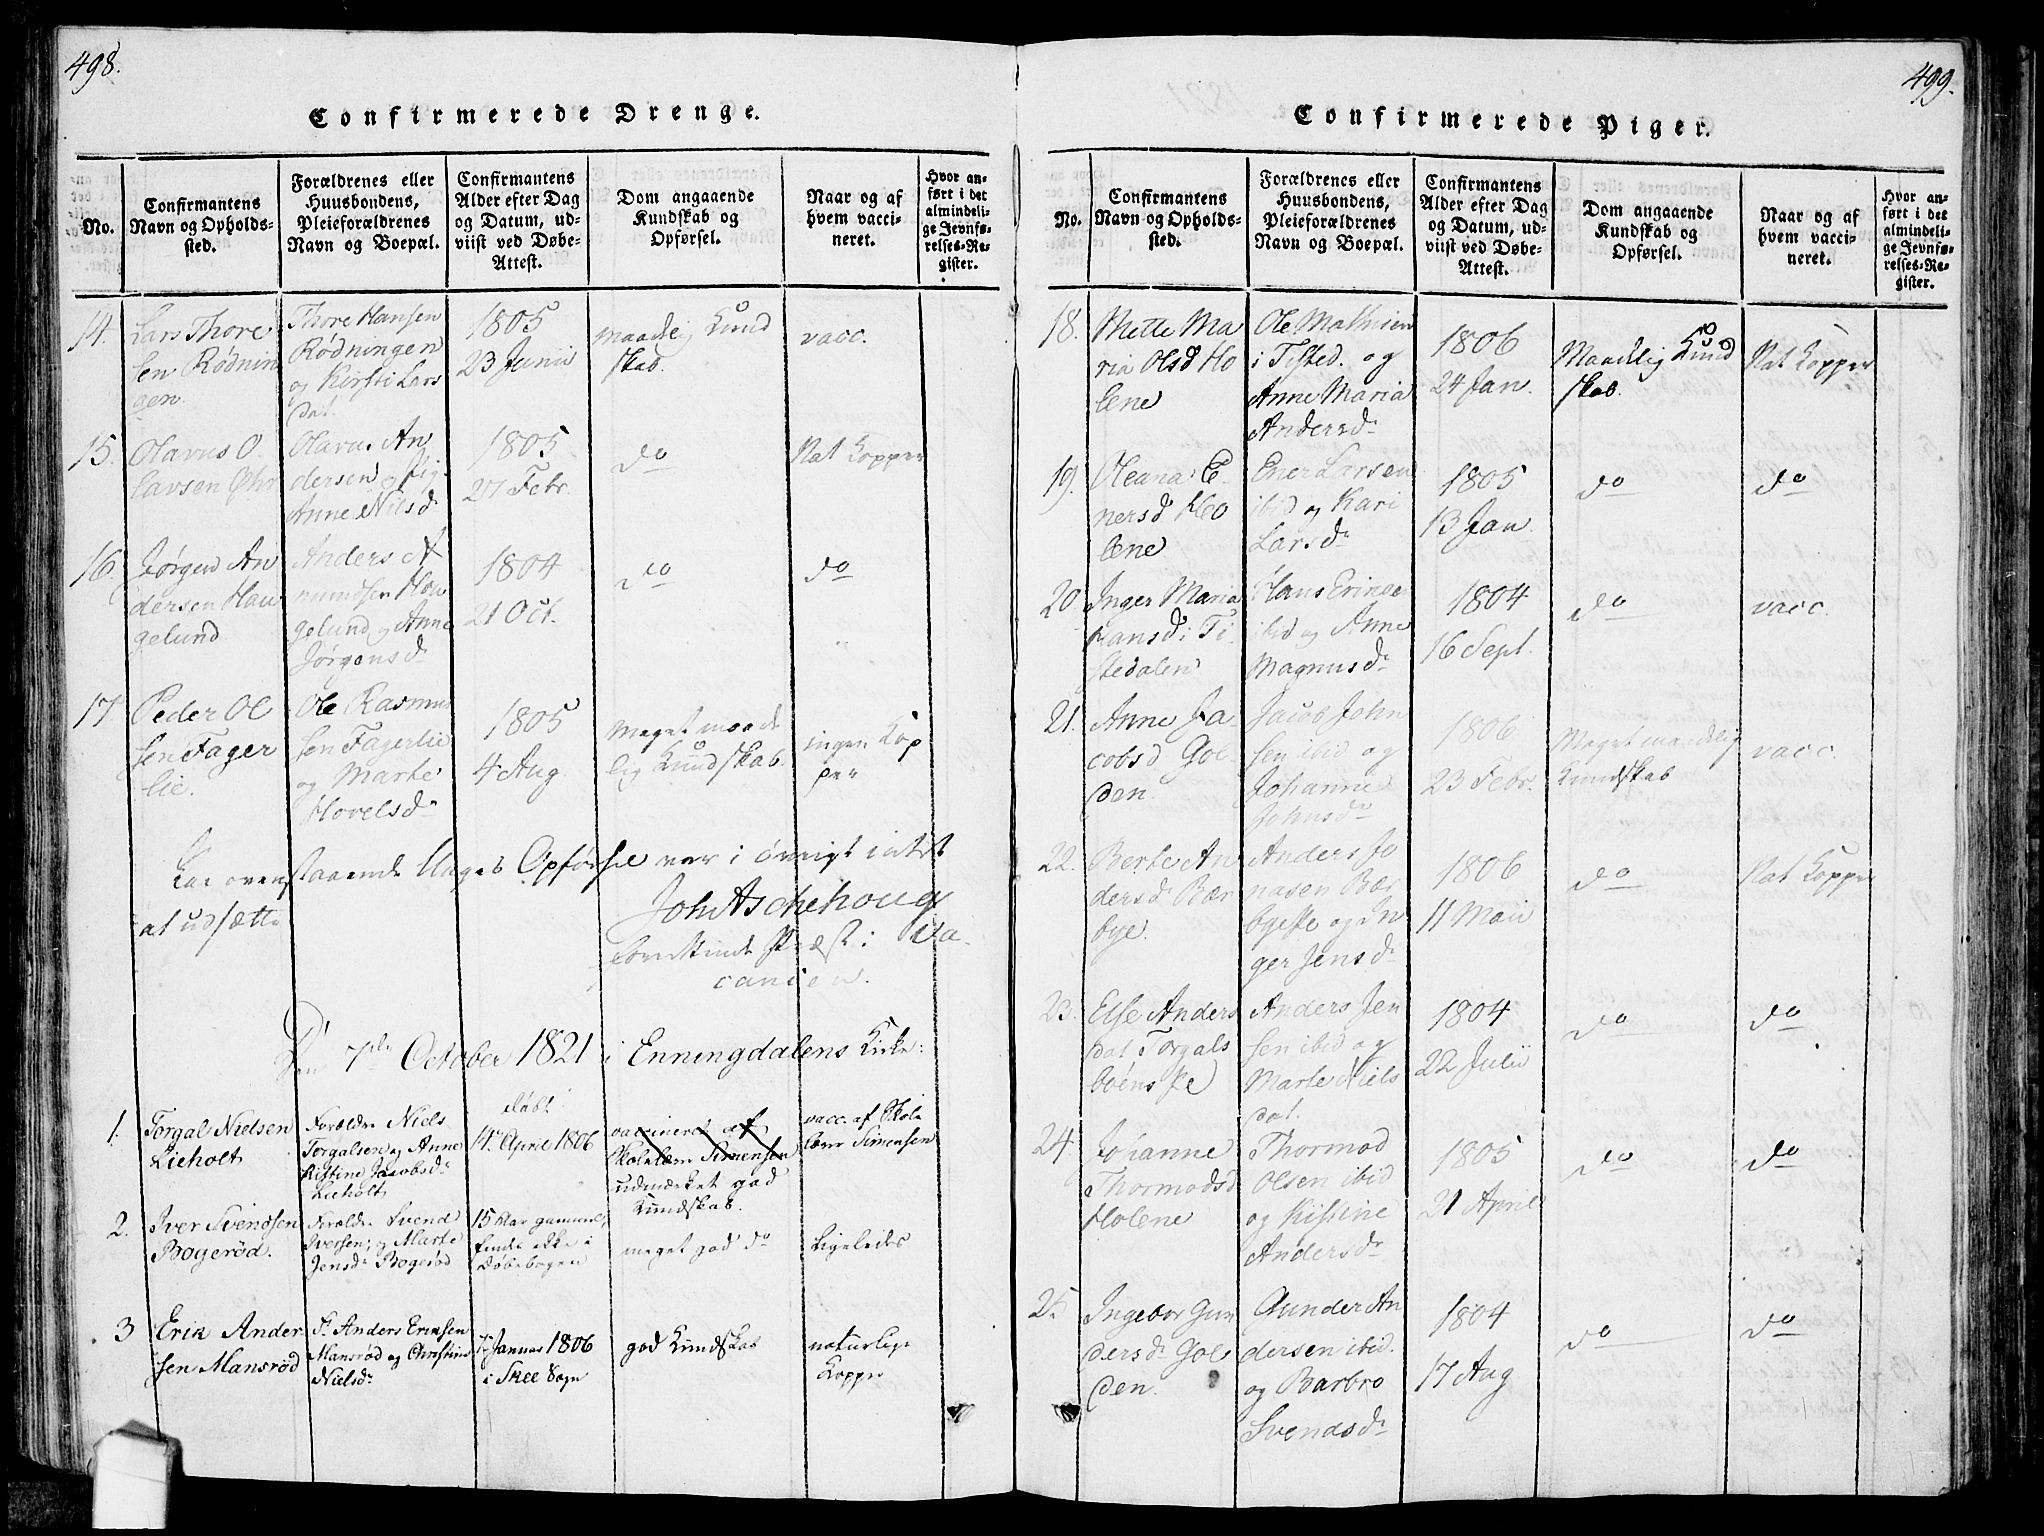 498.
Confirmerede Drenge.
No.
Confirmantens
Navn og Opholds-
sted.
Forældrenes eller
Huusbondens,
Pleieforældrenes
Navn og Boepæl.
Confirmantens
Alder efter Dag
og Datum, ud-
viist ved Døbe-
Attest.
Dom angaaende
Kundskab og
Opførsel.
Naar og af
hvem vacci-
neret.
Hvor an-
ført i det
almindeli-
ge Jevnfø-
relses-Re-
gister.
14.
Lars Thore
sen Rødnin
gen
Thore Hansen
Rødningen
og Kirsti Lars
dat.
1805
23 Junii
maadelig Kund
skab.
vacc.
15.
Olavus O
lavsen
Olavus An
dersen
Anne Nielsd
1805
27 Febr.
do
Nat Kopper
16.
Jørgen An
dersen Hau
gelund
Anders A
mundsen Hou
gelund og Anne
Jørgensd
1804
21 Oct.
do
do
17
Peder Ol
sen Fager
lie.
Ole Rasmus
sen Fagerlie
og Marte
Hovelsdr
1805
4 Aug.
Meget maade
lig Kundskab.
ingen Kop
per
ovenstaaende Unges Opførsel var i øvrigt intet
at udsætte
Joh Aschehoug
Præst i Va-
cancen.
Den 7de October 1821 i Enningdalens Kirke:
1.
Torgal Nielsen
Lieholt
Forældre Niels
Torgalsen og Anne
Kistine Jacobsdr
Lieholt
døbt
14 April 1806
vaccineret af
Skolelærer Simensen
udmærket god
Kundskab.
vacc. af Skole
lærer Simensen
2.
Iver Svendsen
Bogerød.
Forældre Svend
Iversen, og Marte
Jensdr Bogerød
15 Aar gammel,
findes ikke i
Døbebogen
meget god do
Ligeledes
3
Erik Ander
sen Mansrød
F. Anders Eriksen
Mansrød og Christine
Nielsdr
Januar 1806
i Skee Sogn
god Kundskab
naturlige
Kopper
499.
Confirmerede Piger.
No.
Confirmantens
Navn og Opholds-
sted.
Forældrenes eller
Huusbondens,
Pleieforældrenes
Navn og Boepæl.
Confirmantens
Alder efter Dag
og Datum, ud-
viist ved Døbe-
Attest.
Dom angaaende
Kundskab og
Opførsel.
Naar og af
hvem vacci-
neret.
Hvor an-
ført i det
almindeli-
ge Jevnfø-
relses-Re-
gister.
18.
Mette Ma
ria Olsd Ho
lene
Ole Mathisen
i Tisted. og
Anne Maria
Andersdr
1806
24 Jan.
Maadelig Kund
skab.
Nat Kopper
19.
Oleana E
nersd Ho
lene
Ener Larsen
ibid og Kari
Larsdr
1805
13 Jan.
do
do
20.
Inger Maria
Hansd i Ti
stedalen
Hans
ibid og Anne
Magnusdr
1804
16 Sept.
do
vacc.
21.
Anne Ja-
cobsd Gol
den
Jacob John
sen ibid og
Johanne
Johnsdr
1806
23 Febr.
Meget maadelig
Kundskab
vacc.
22.
Berte An
dersdr Bær
bye.
Anders Jo
nasen Bær
byeske og In
ger Jensdr
1806
11 Maii
do
Nat Kopper
23.
Else Anders
dat Torgals
bøenske
Anders Jen
sen ibid og
Marte Niels
dat.
1804
22 Julii
do
do
24.
Johanne
Thormodsd
Holene
Thormod
Olsen ibid
og Kistine
Andersdr
1805
21 April
do
do
25.
Ingebor Gun
dersdr Gol
den.
Gunder An
dersen ibid.
og Barbro
Svendsdr
1804
17 Aug
do
do